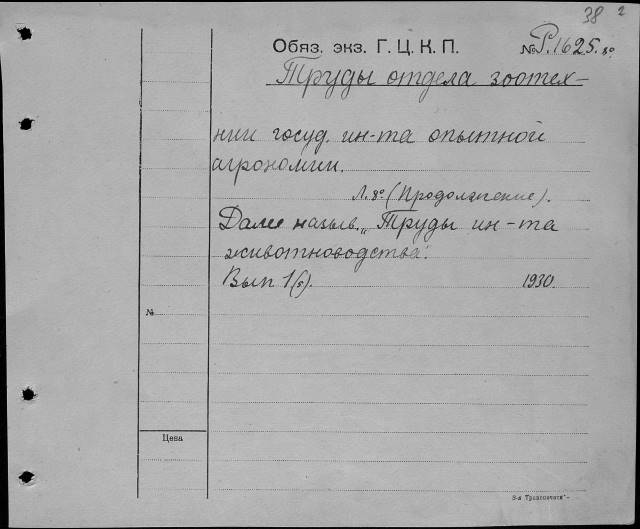 38 2
Обяз. экз. Г. Ц. К. П. № Р.1625. 8°
Труды отдела зоотех-
нии госуд. ин-та опытной
агрономии.
Л. 8° (Продолжение).
Далее назыв. „Труды ин-та
животноводства".
Вып 1(5). 1930.
№
Цена
3-я Транспечати"-